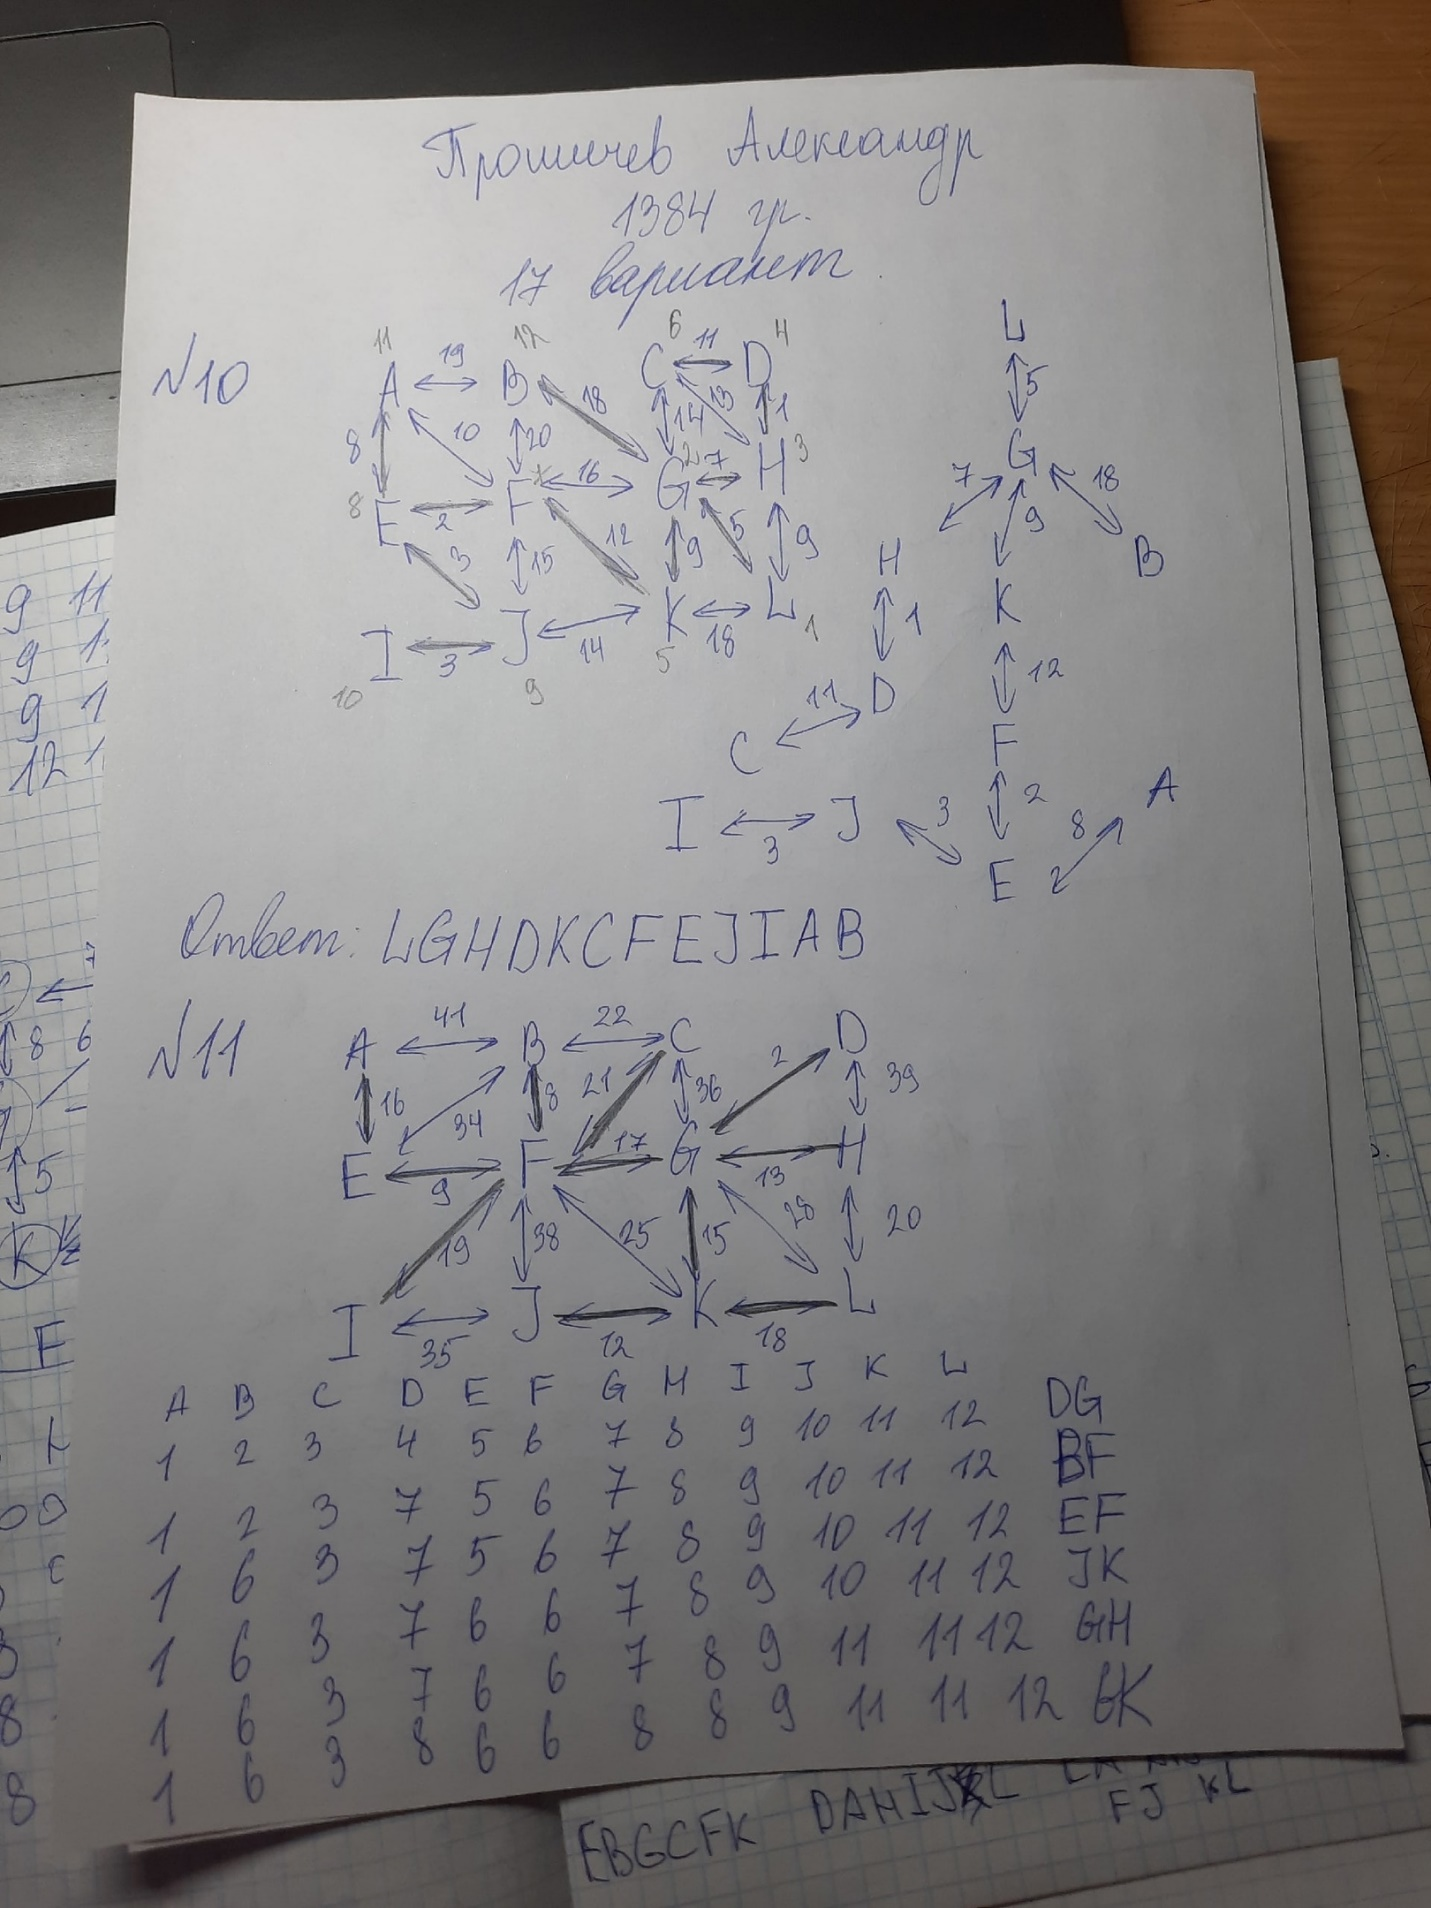 Прошичев Александр
1384 гр.
17 вариант.
№10
11 12 6 4
A 19 B C 11 D
8 10 20 18 14 13 1
8 E 2 F 16 G 2 7 H 3
3 15 12 9 5 9
I 3 J 14 K 18 L 1
10 9 5
L
5
G
7 9 18
H K B
1 12
D F
11
C
2
I 3 J 3 E 8 A
Ответ: LGHDKCFEJIAB
№11
A 41 B 22 C D
16 34 8 21 36 2 39
E 9 F 17 G 13 H
19 38 25 15 28 20
I 35 J 12 K 18 L
A B C D E F G H I J K L
1 2 3 4 5 6 7 8 9 10 11 12 DG
1 2 3 7 5 6 7 8 9 10 11 12 BF
1 6 3 7 5 6 7 8 9 10 11 12 EF
1 6 3 7 6 6 7 8 9 10 11 12 JK
1 6 3 7 6 6 7 8 9 11 11 12 GH
1 6 3 8 6 6 8 8 9 11 11 12 GK
9 11
9
9
12
8 6
5
K
F
8
8
EBGCFK DAHIJ L
FJ KL